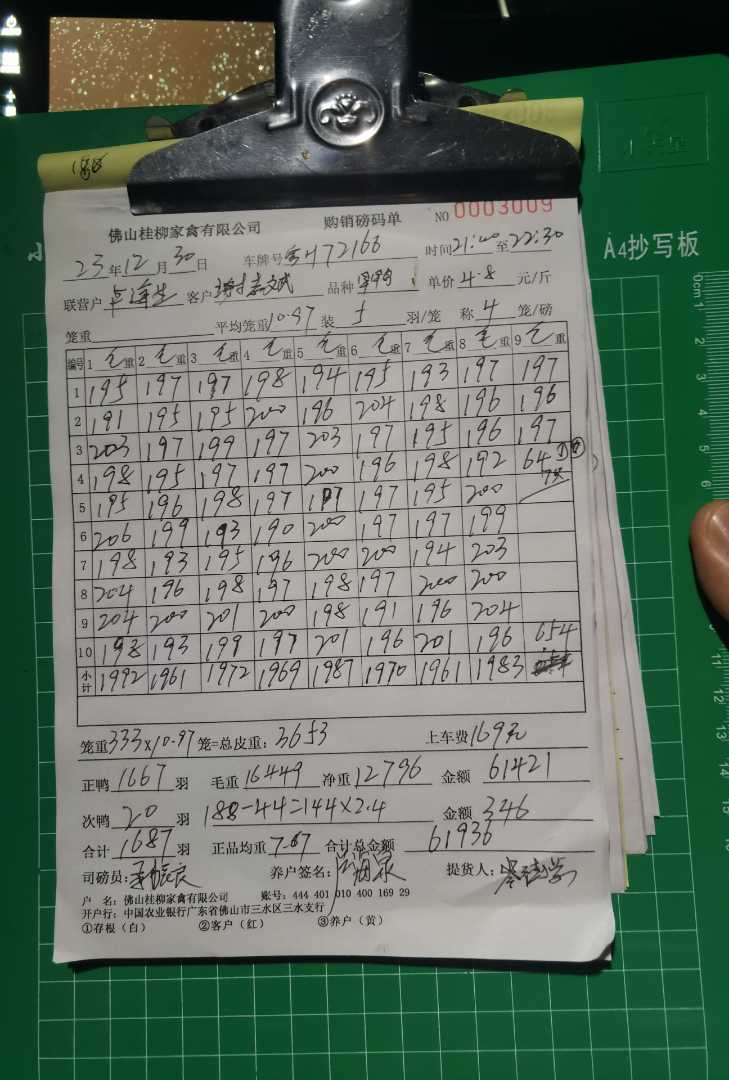 佛山桂柳家禽有限公司 购销磅码单 NO 0003009
23年12月30日 车牌号 72168 时间21:40至22:30
联营户 客户 品种 单价4.8元/斤
笼重 平均笼重10.97装5羽/笼 称4笼/磅
编号 1毛重 2毛重 3毛重 4毛重 5毛重 6毛重 7毛重 8毛重 9毛重
1 195 197 197 198 194 195 193 197 197
2 191 195 195 200 196 204 198 196 196
3 203 197 199 197 203 197 195 196 197
4 198 195 197 197 200 196 198 192 64
5 195 196 198 197 197 197 195 200
6 206 199 193 190 200 197 197 199
7 198 193 195 196 200 200 194 203
8 204 196 198 197 198 197 200 200
9 204 200 201 200 198 191 196 204
10 198 193 199 197 201 196 201 196 654
小计 1992 1961 1972 1969 1987 1970 1961 1983
笼重333x10.97笼=总皮重：3653 上车费169元
正鸭1667羽 毛重16449净重12796 金额61421
次鸭20羽 188-44=144×2.4 金额346
合计1687羽 正品均重7.67 合计总金额61936
司磅员： 养户签名： 提货人：
户 名：佛山桂柳家禽有限公司 账号：444 401 010 400 169 29
开户行：中国农业银行广东省佛山市三水区三水支行
①存根（白） ②客户（红） ③养户（黄）
A4抄写板
0cm 1 2 3 4 5 6 11 12 13 14 15